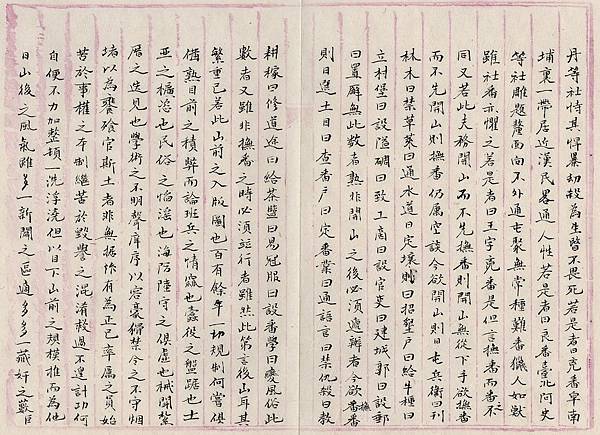 丹等社恃其悍暴劫殺為生暋不畏死若是者曰兇番卑南
埔裏一帶居近漢民畧通人性若是者曰良番臺北阿史
等社雕題黧面向不外通屯聚無常種難番獵人如獸
雖社番亦懼之若是者曰王字兇番是但言撫番而番之不
同又若此夫務開山而不先撫番則開山無從下手欲撫番
而不先開山則撫番仍屬空談今欲開山則曰屯兵衛曰刊
林木曰焚草萊曰通水道曰定壤則曰招墾戶曰給牛種曰
立村堡曰設隘碉曰致工商曰設官吏曰建城郭曰設郵
曰置廨無此數者熟非開山之後必須遞辦者今欲撫番
則曰選土目曰查番戶曰定番業曰通語言曰禁仇殺曰教
耕稼曰修道途曰給茶鹽曰易冠服曰設番學曰變風俗此
數者又孰非撫番之時必須並行者雖然此第言後山耳其
繁重已若此山前之入版圖也百有餘年一切規制何嘗俱
備就目前之積弊而論班兵之惰窳也蠹役之盤踞也土
匪之橫恣也民俗之慆淫也海防陸守之俱虛也械鬬紮
厝之迭見也學術之不明聲庠序以容豪猾禁令之不守烟
堵以為饔飧官斯土者非無振作有為正己率屬之員始
苦於事權之牽制繼苦於毀譽之混淆救過不遑計功何
自使不力加整頓一洗浮澆但以目下山前之規模推而為他
日山後之風氣雖多一新闢之區適多多一藏奸之藪臣